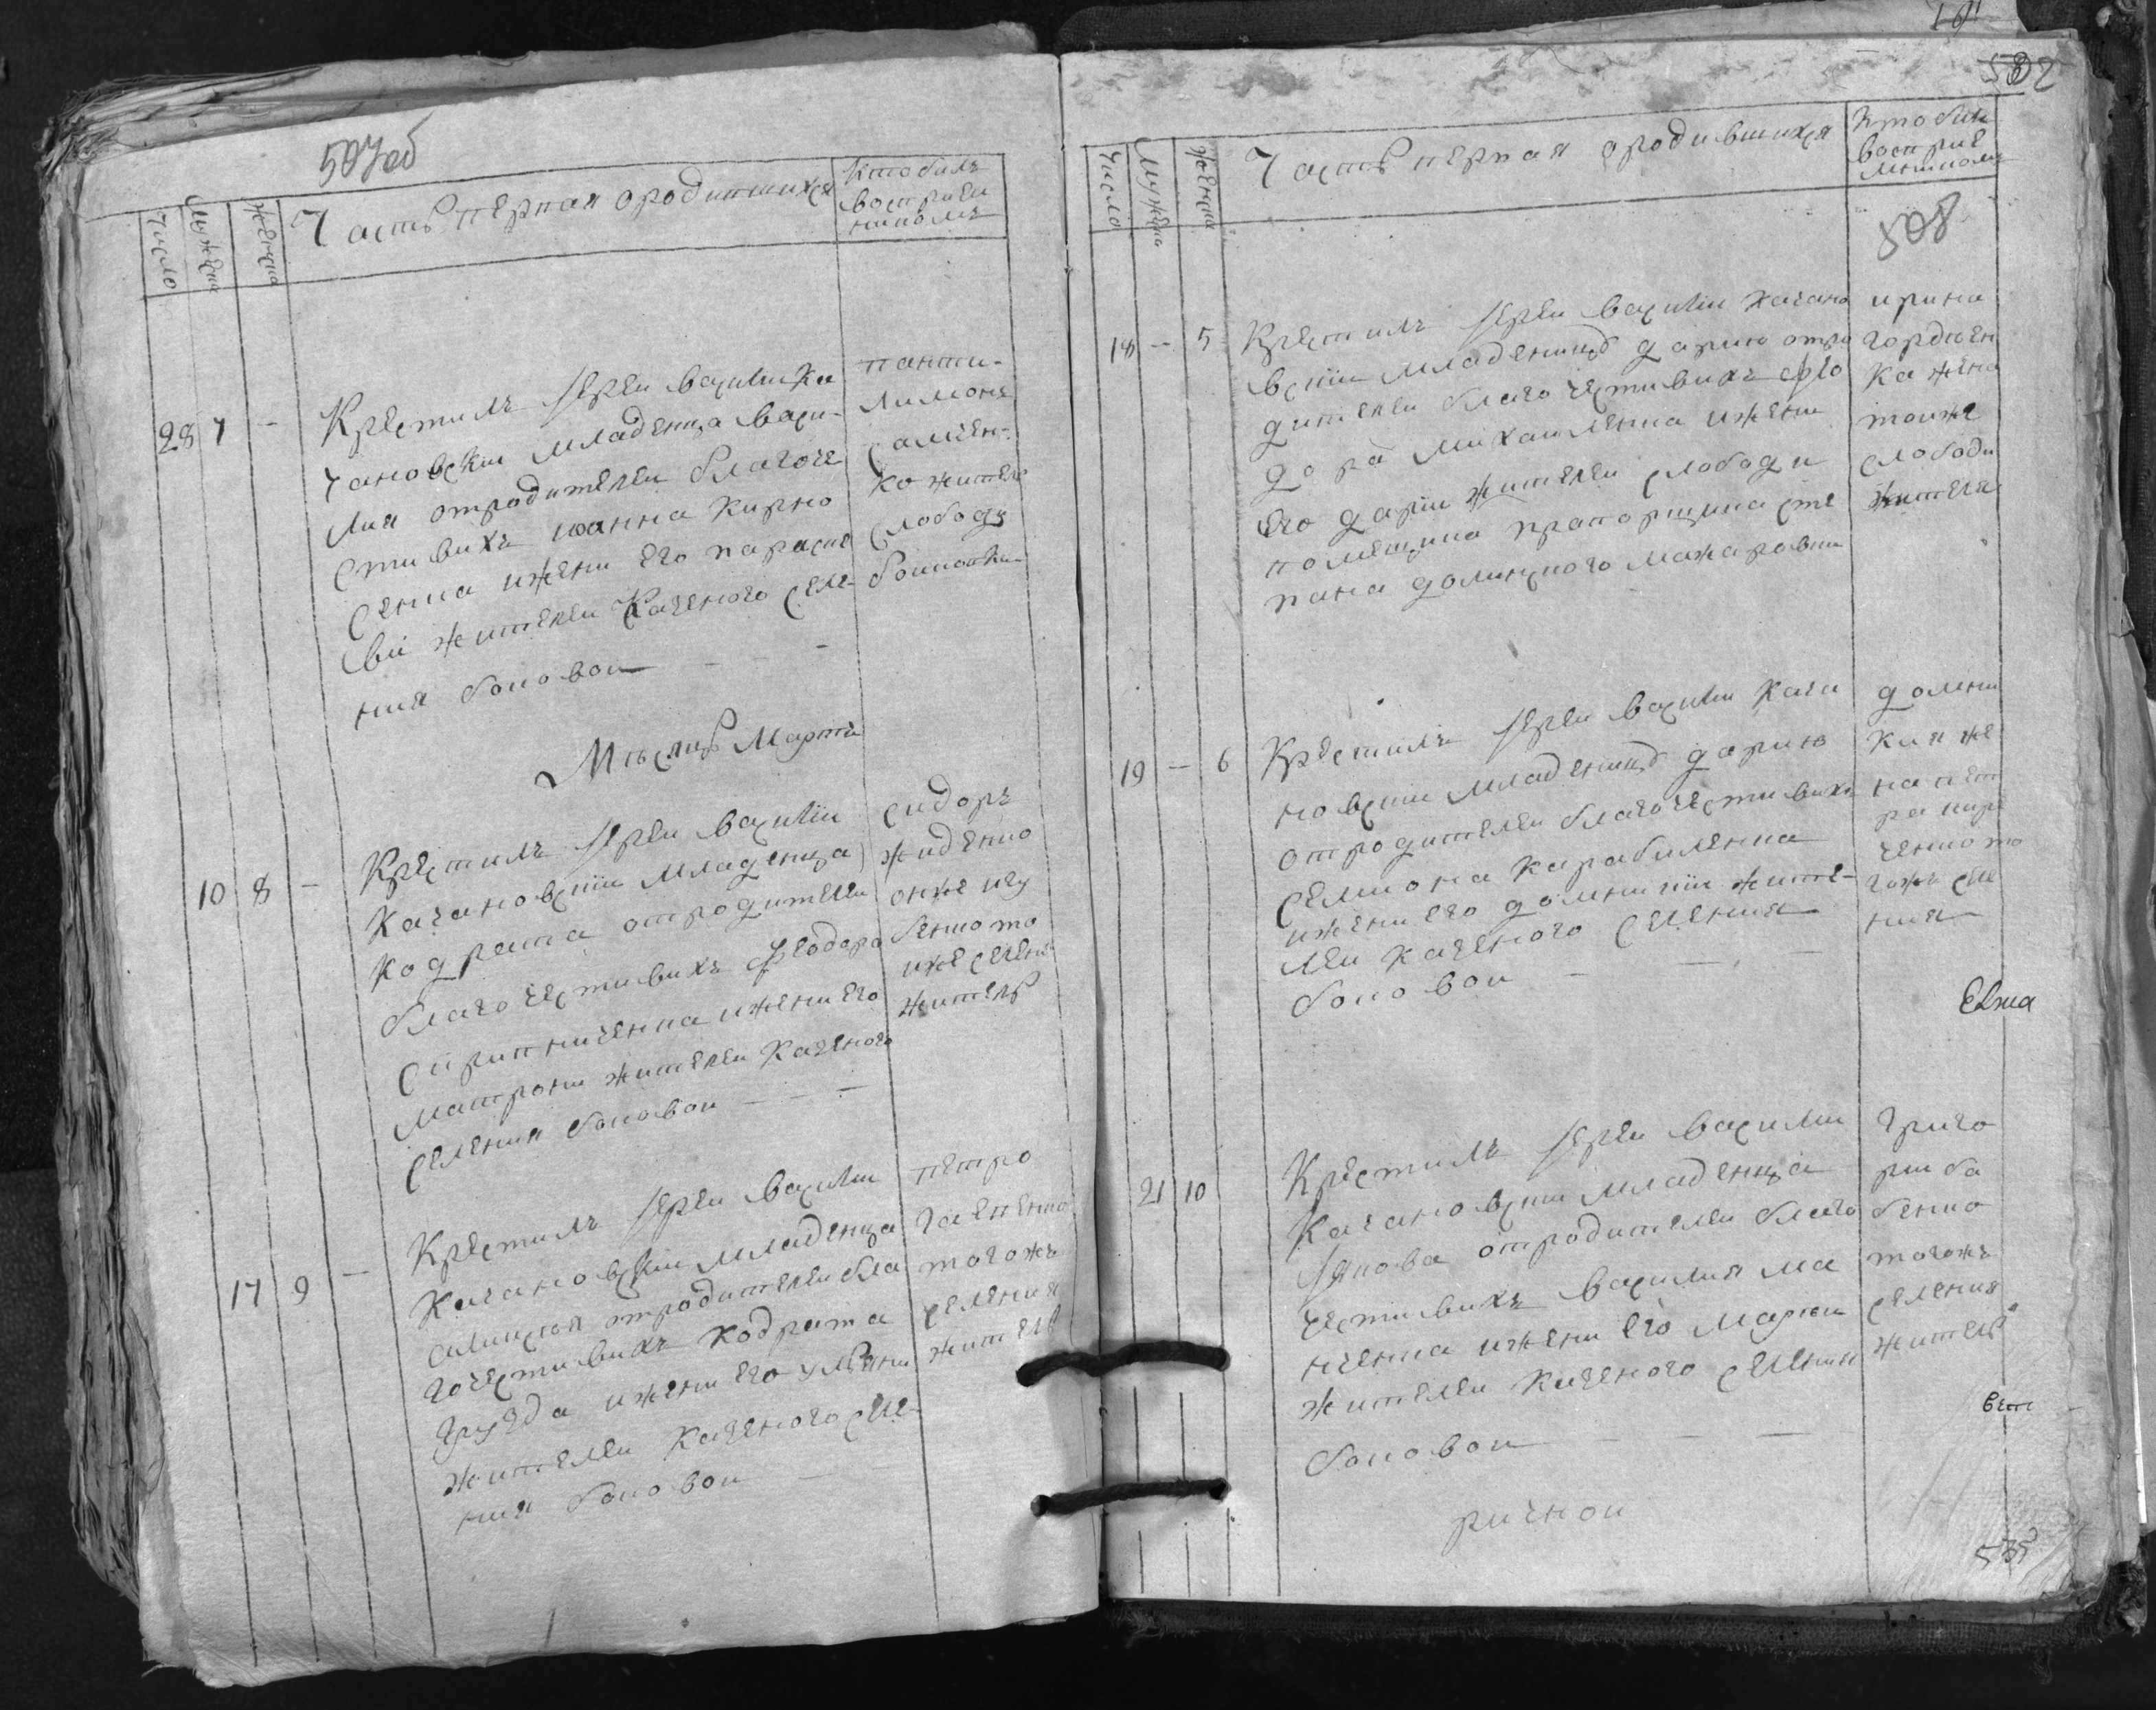 507об
Число
Мужеска
Женска
Часть первая о родившихся
Кто билъ
воспрiем
никомъ
28 7 -
Крестилъ iерей Василий Ка
чановскiй младенца Васи-
лия отродителей благоче
стивихъ иоанна Кирно
сенка ижени его параске
вiи жителей Казеного селе-
ния боновои
панти-
лимонъ
самсен-
ко житель
слободи
Месяцъ Мартъ
10 8 -
Крестилъ iерей Василiй
Качановскiй младенца
кодрата отродителей
благочестивихъ феодора
скрипниченка ижени его
матрони жителей Казеного
селения боновои
сидоръ
жиденко
онже
бенко то
иже селения
житель
17 9 -
Крестилъ iерей Василий
Качановскiй младенца
аликсея отродителей бла
гочестивихъ кодрата
грузда ижени его улияни
жителей Казеного селе
ния боновои
петро
гаепенко
тогожъ
селения
житель
502
Число
Мужеска
Женска
Часть первая о родившихся
Кто билъ
воспрiе
мникомъ
508
18 - 5
Крестилъ iерей Василiй Качано
вскiй младеницу дарию отро
дителей благочестивихъ фео
дора михайленка ижени
его дарiи жителей слободи
помещика прапорщика сте
пана долинского мажаровки
ирина
гордиен
ка жена
тоиже
слободи
жителя
19 - 6
Крестилъ iерей Василий Кача
новскiй младеницу дарию
отродителей благочестивихъ
семиона карабиленка
ижени его домникiи жите-
лей казеного селения
боновои
домни
кия же
на пет
ра кири
ченко то
гожъ селе
ния
21 10
Крестилъ iерей Василий
Качановскiй младенца
iякова отродителей благо
честивихъ василия ма
нченка ижени его марфи
жителей казеного селения
боновои
григо
рий ба
бенко
тогожъ
селения
житель
ричнои
535